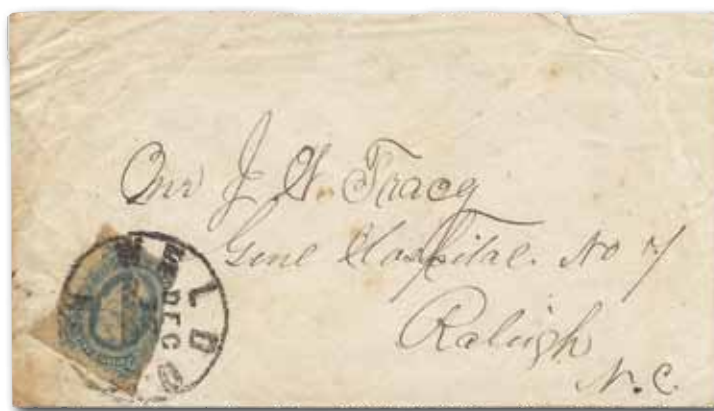 Mr J. W. Tracy
Genl Hospital. No 7
Raleigh
N.C.
WELD
DEC